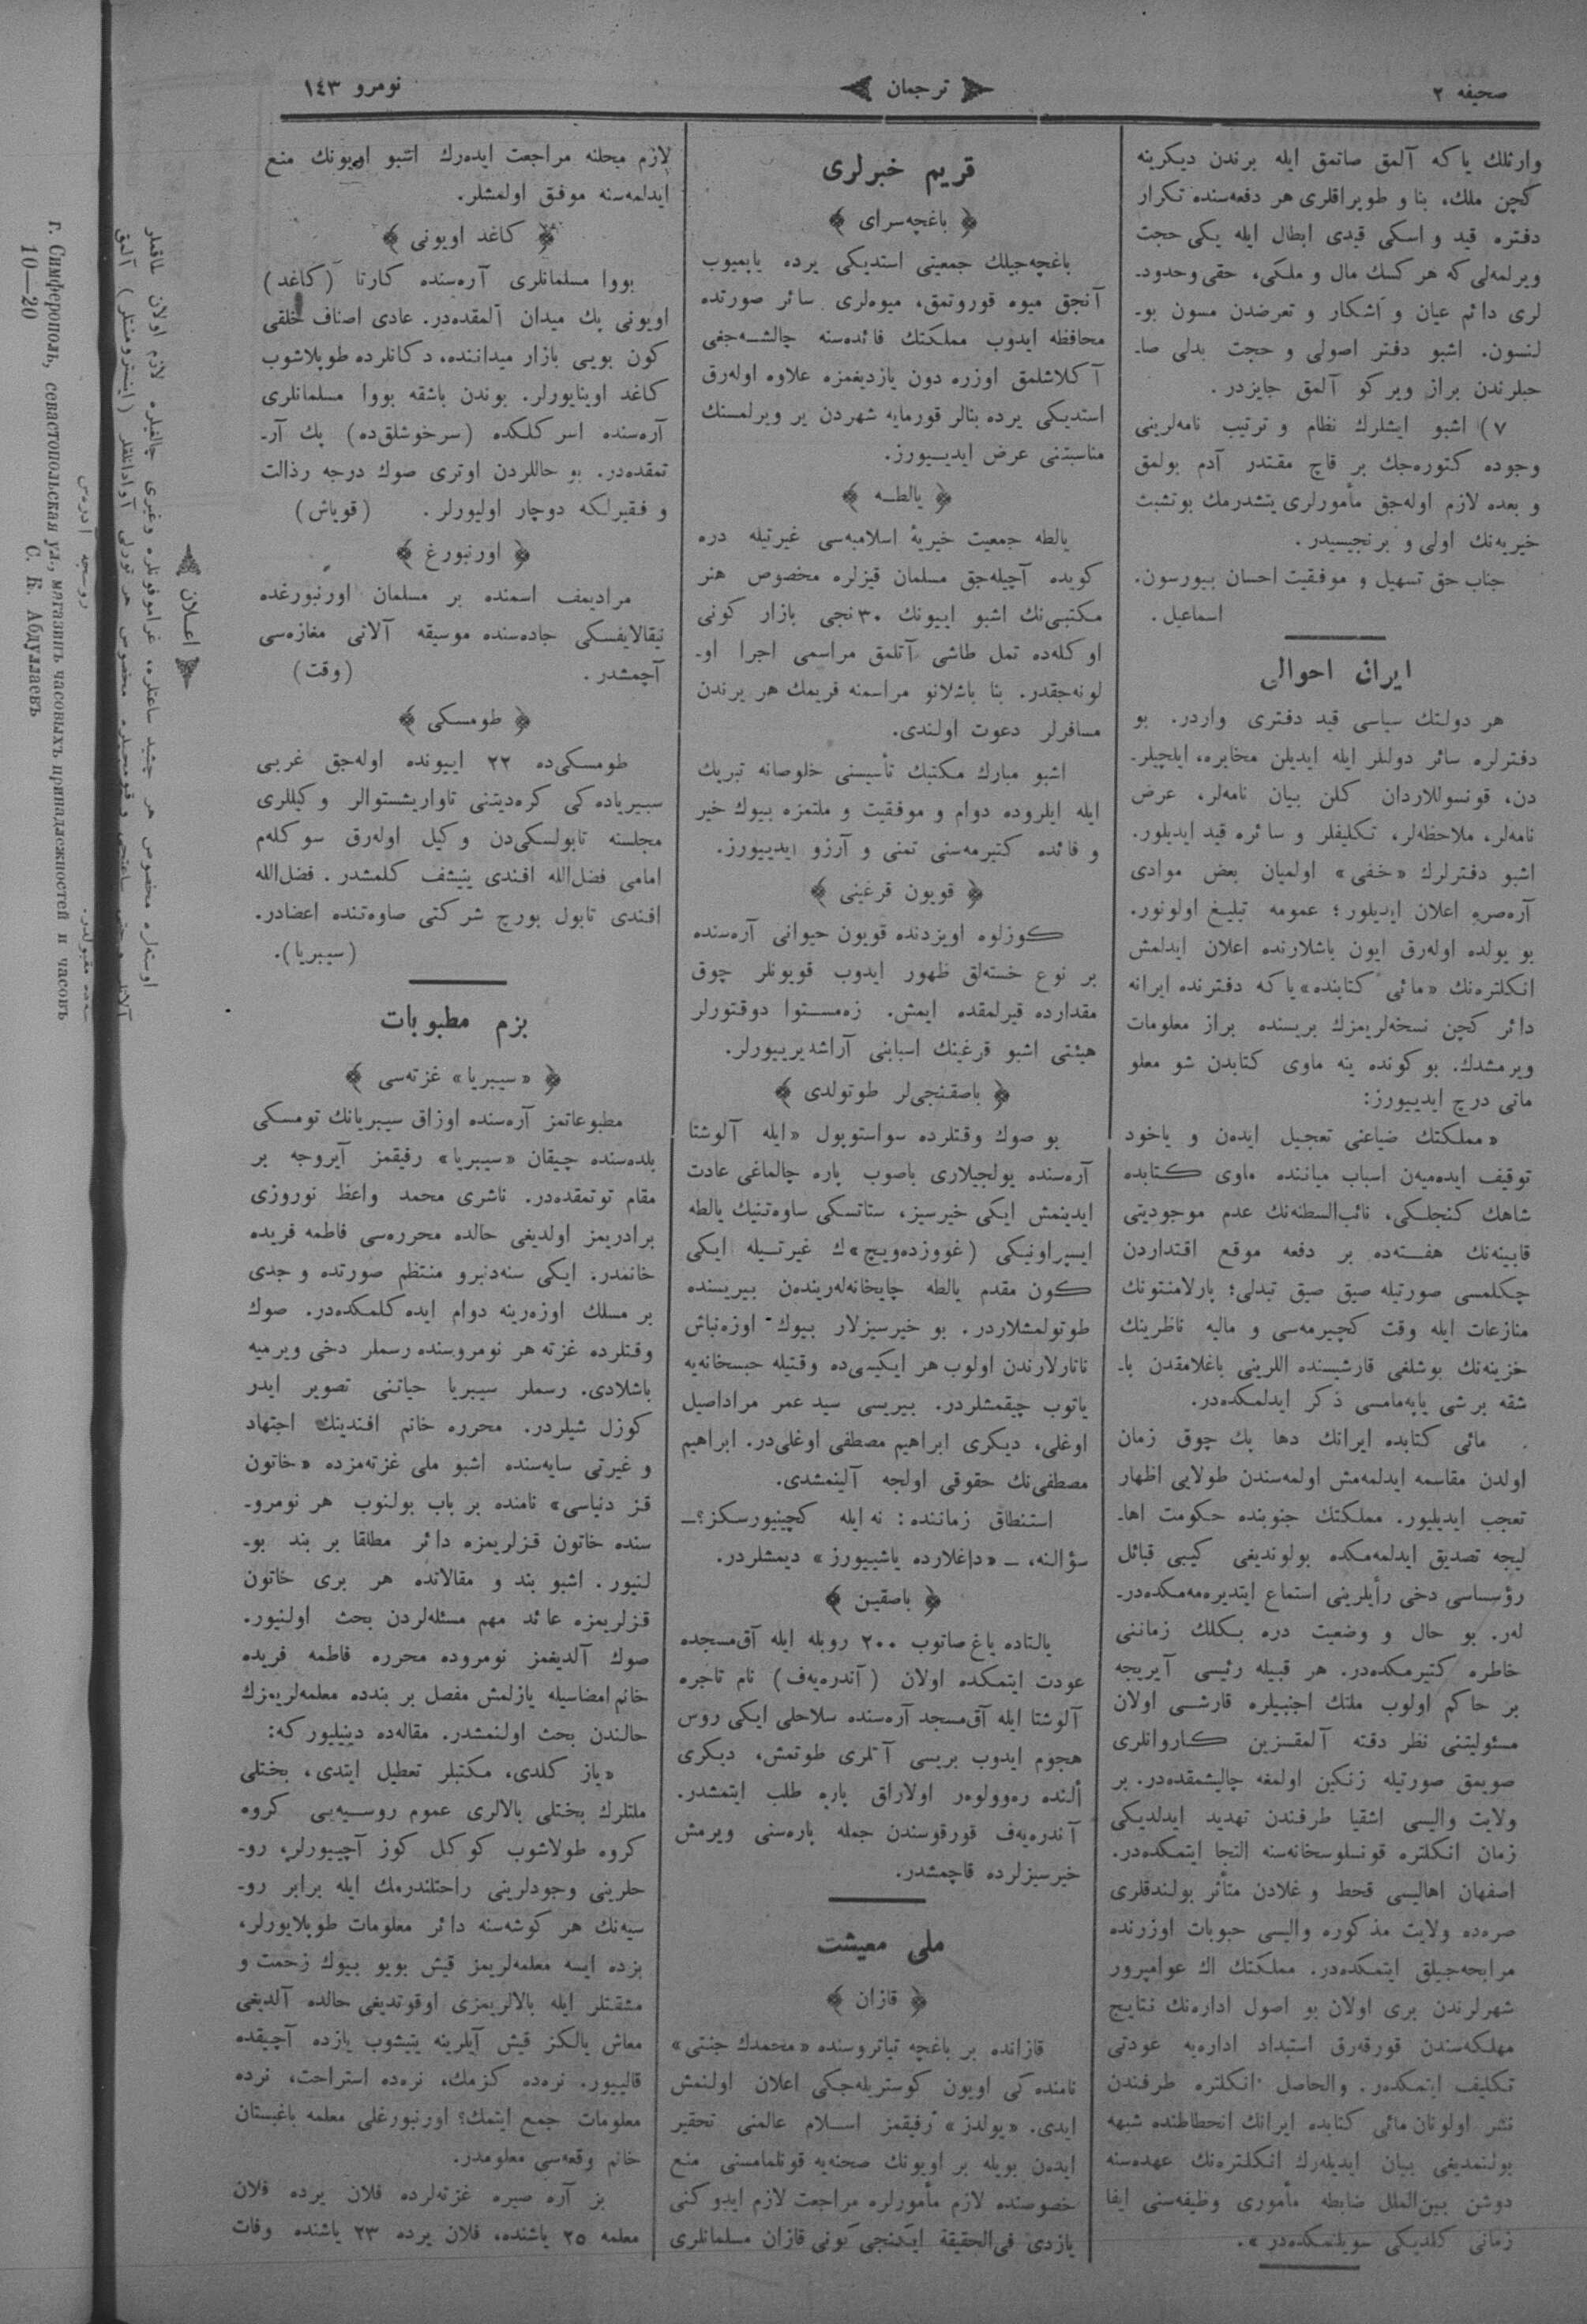 صحيفه ٢
ترجمان
نومرو ١٤٣
وارثلك ياكه آلمق صاتمق ايله برندن ديكرينه
كچن ملك، بنا و طوپراقلرى هر دفعه‌سنده تكرار
دفتره قيد و اسكى قيدى ابطال ايله يكى حجت
ويرلمه‌لى كه هر كسك مال و ملكى، حقى وحدود-
لرى دائم عيان و آشكار و تعرضدن مسون بو-
لنسون. اشبو دفتر اصولى و حجت بدلى صا-
حبلرندن براز ويركو آلمق جايزدر.
٧) اشبو ايشلرك نظام و ترتيب نامه‌لرينى
وجوده كتوره‌جك بر قاچ مقتدر آدم بولمق
و بعده لازم اوله‌جق مأمورلرى يتشدرمك بوتشبث
خيريه‌نك اولى و برنجيسيدر.
جناب حق تسهيل و موفقيت احسان بيورسون.
اسماعيل.
ايران احوالى
هر دولتك سياسى قيد دفترى واردر. بو
دفترلره سائر دولتلر ايله ايديلن مخابره، ايلچيلر-
دن، قونسوللاردان كلن بيان نامه‌لر، عرض
نامه‌لر، ملاحظه‌لر، تكليفلر و سائره قيد ايديلور.
اشبو دفترلرك «خفى» اولميان بعض موادى
آره‌صره اعلان ايديلور؛ عمومه تبليغ اولونور.
بو يولده اوله‌رق ايون باشلارنده اعلان ايدلمش
انكلتره‌نك «مائى كتابنده» ياكه دفترنده ايرانه
دائر كچن نسخه‌لريمزك بريسنده براز معلومات
ويرمشدك. بو كونده ينه ماوى كتابدن شو معلو
ماتى درج ايدييورز:
«مملكتك ضياعنى تعجيل ايده‌ن و ياخود
توقيف ايده‌ميه‌ن اسباب مياننده ماوى كتابده
شاهك كنجلكى، نائب‌السطنه‌نك عدم موجوديتى
قابينه‌نك هفته‌ده بر دفعه موقع اقتداردن
چكلمسى صورتيله صيق صيق تبدلى؛ پارلامنتونك
منازعات ايله وقت كچيرمه‌سى و ماليه ناظرينك
خزينه‌نك بوشلغى قارشيسنده اللرينى باغلامقدن با-
شقه برشى ياپه‌مامسى ذكر ايدلمكده‌در.
مائى كتابده ايرانك دها پك چوق زمان
اولدن مقاسمه ايدلمه‌مش اولمه‌سندن طولايى اظهار
تعجب ايديليور. مملكتك جنوبنده حكومت اها-
ليجه تصديق ايدلمه‌مكده بولونديغى كيبى قبائل
رؤسياسى دخى رأيلرينى استماع ايتديره‌مه‌مكده‌در-
لر. بو حال و وضعيت دره بكلك زماننى
خاطره كتيرمكده‌در. هر قبيله رئيسى آيريجه
بر حاكم اولوب ملتك اجنبيلره قارشى اولان
مسئوليتنى نظر دقته آلمقسزين كاروانلرى
صويمق صورتيله زنكين اولمغه چاليشمقده‌در. بر
ولايت واليسى اشقيا طرفندن تهديد ايدلديكى
زمان انكلتره قونسلوسخانه‌سنه التجا ايتمكده‌در.
اصفهان اهاليسى قحط و غلادن متأثر بولندقلرى
صره‌ده ولايت مذكوره واليسى حبوبات اوزرنده
مرابحه‌جيلق ايتمكده‌در. مملكتك اك عوامپرور
شهرلرندن برى اولان بو اصول اداره‌نك نتايج
مهلكه‌سندن قورقه‌رق استبداد اداره‌يه عودتى
تكليف ايتمكده‌ر. والحاصل انكلتره طرفندن
نشر اولونان مائى كتابده ايرانك انحطاطنده شبهه
بولنمديغى بيان ايديله‌رك انكلتره‌نك عهده‌سنه
دوشن بين‌الملل ضابطه مأمورى وظيفه‌سنى ايفا
زمانى كلديكى سويلنمكده‌در».
قريم خبرلرى
﴿ باغچه‌سراى ﴾
باغچه‌جيلك جمعيتى استديكى يرده ياپميوب
آنجق ميوه قوروتمق، ميوه‌لرى سائر صورتده
محافظه ايدوب مملكتك فائده‌سنه چالشه‌جغى
آكلاشلمق اوزره دون يازديغمزه علاوه اوله‌رق
استديكى يرده بنالر قورمايه شهردن ير ويرلمسنك
مناسبتنى عرض ايدييورز.
﴿ يالطه ﴾
يالطه جمعيت خيريۀ اسلاميه‌سى غيرتيله دره
كويده آچيله‌جق مسلمان قيزلره مخصوص هنر
مكتبى‌نك اشبو اييونك ٣٠نجى بازار كونى
اوكله‌ده تمل طاشى آتلمق مراسمى اجرا او-
لونه‌جقدر. بنا باشلانو مراسمنه قريمك هر يرندن
مسافرلر دعوت اولندى.
اشبو مبارك مكتبك تأسيسنى خلوصانه تبريك
ايله ايلروده دوام و موفقيت و ملتمزه بيوك خير
و فائده كتيرمه‌سنى تمنى و آرزو ايدييورز.
﴿ قويون قرغينى ﴾
كوزلوه اويزدنده قويون حيوانى آره‌سنده
بر نوع خسته‌لق ظهور ايدوب قويونلر چوق
مقدارده قيرلمقده ايمش. زه‌مستوا دوقتورلر
هيئتى اشبو قرغينك اسبابنى آراشديرييورلر.
﴿ باصقنجى‌لر طوتولدى ﴾
بو صوك وقتلرده سواستوپول «ايله آلوشتا
آره‌سنده يولجيلارى باصوب پاره چالماغى عادت
ايدينمش ايكى خيرسيز، ستاتسكى ساوه‌تنيك يالطه
ايسپراونيكى (غووزده‌ويچ»ك غيرتيله ايكى
كون مقدم يالطه چايخانه‌له‌رينده‌ن بيريسنده
طوتولمشلاردر. بو خيرسيزلار بيوك اوزه‌نباش
تاتارلارندن اولوب هر ايكيسى‌ده وقتيله حبسخانه‌يه
ياتوب چيقمشلردر. بيريسى سيد عمر مراداصيل
اوغلى، ديكرى ابراهيم مصطفى اوغلى‌در. ابراهيم
مصطفى‌نك حقوقى اولجه آلينمشدى.
استنطاق زماننده: نه ايله كچينيورسكز؟—
سؤالنه، — «داغلارده ياشييورز» ديمشلردر.
﴿ باصقين ﴾
يالتاده ياغ صاتوب ٢٠٠ روبله ايله آق‌مسجده
عودت ايتمكده اولان (آندره‌يه‌ف) نام تاجره
آلوشتا ايله آق‌مسجد آره‌سنده سلاحلى ايكى روس
هجوم ايدوب بريسى آتلرى طوتمش، ديكرى
ألنده ره‌وولوه‌ر اولاراق پاره طلب ايتمشدر.
آندره‌يه‌ف قورقوسندن جمله پاره‌سنى ويرمش
خيرسيزلرده قاچمشدر.
ملى معيشت
﴿ قازان ﴾
قازانده بر باغچه تياتروسنده «محمدك جنتى»
نامنده‌كى اويون كوستريله‌جكى اعلان اولنمش
ايدى. «يولدز» رفيقمز اسلام عالمنى تحقير
ايده‌ن بويله بر اويونك صحنه‌يه قونلمامسنى منع
خصوصنده لازم مأمورلره مراجعت لازم ايدوكنى
يازدى فى‌الحقيقة ايكنجى كونى قازان مسلمانلرى
لازم محلنه مراجعت ايده‌رك اشبو اويونك منع
ايدلمه‌سنه موفق اولمشلر.
﴿ كاغد اويونى ﴾
بووا مسلمانلرى آره‌سنده كارتا (كاغد)
اويونى پك ميدان آلمقده‌در. عادى اصناف خلقى
كون بويى بازار ميداننده، دكانلرده طوپلاشوب
كاغد اوينايورلر. بوندن باشقه بووا مسلمانلرى
آره‌سنده اسركلكده (سرخوشلق‌ده) پك آر-
تمقده‌در. بو حاللردن اوترى صوك درجه رذالت
و فقيرلكه دوچار اوليورلر. (قوياش)
﴿ اورنبورغ ﴾
مراديمف اسمنده بر مسلمان اورنبورغده
نيقالايفسكى جاده‌سنده موسيقه آلاتى مغازه‌سى
آچمشدر. (وقت)
﴿ طومسكى ﴾
طومسكى‌ده ٢٢ اييونده اوله‌جق غربى
سيبرياده‌كى كره‌ديتنى تاواريشستوالر وكيللرى
مجلسنه تابولسكى‌دن وكيل اوله‌رق سوكله‌م
امامى فضل‌الله افندى ينيشف كلمشدر. فضل‌الله
افندى تابول بورچ شركتى صاوه‌تنده اعضادر.
(سيبريا).
بزم مطبوعات
﴿ «سيبريا» غزته‌سى ﴾
مطبوعاتمز آره‌سنده اوزاق سيبريانك تومسكى
بلده‌سنده چيقان «سيبريا» رفيقمز آيروجه بر
مقام توتمقده‌در. ناشرى محمد واعظ نوروزى
برادريمز اولديغى حالده محرره‌سى فاطمه فريده
خانمدر. ايكى سنه‌دنبرو منتظم صورتده و جدى
بر مسلك اوزه‌رينه دوام ايده كلمكده‌در. صوك
وقتلرده غزته هر نومروسنده رسملر دخى ويرميه
باشلادى. رسملر سيبريا حياتنى تصوير ايدر
كوزل شيلردر. محرره خانم افندينك اجتهاد
و غيرتى سايه‌سنده اشبو ملى غزته‌مزده «خاتون
قز دنياسى» نامنده بر باب بولنوب هر نومرو-
سنده خاتون قزلريمزه دائر مطلقا بر بند بو-
لنيور. اشبو بند و مقالاتده هر برى خاتون
قزلريمزه عائد مهم مسئله‌لردن بحث اولنيور.
صوك آلديغمز نومروده محرره فاطمه فريده
خانم امضاسيله يازلمش مفصل بر بندده معلمه‌لريمزك
حالندن بحث اولنمشدر. مقاله‌ده دينيليور كه:
«ياز كلدى، مكتبلر تعطيل ايتدى، بختلى
ملتلرك بختلى بالالرى عموم روسيه‌يى كروه
كروه طولاشوب كوكل كوز آچييورلر، رو-
حلرينى وجودلرينى راحتلندرمك ايله برابر رو-
سيه‌نك هر كوشه‌سنه دائر معلومات طوپلايورلر،
بزده ايسه معلمه‌لريمز قيش بويو بيوك زحمت و
مشقتلر ايله بالالريمزى اوقوتديغى حالده آلديغى
معاش يالكز قيش آيلرينه يتيشوب يازده آچيقده
قالييور. نره‌ده كزمك، نره‌ده استراحت، نرده
معلومات جمع ايتمك؟ اورنبورغلى معلمه باغبستان
خانم وقعه‌سى معلومدر.
بز آره صيره غزته‌لرده فلان يرده فلان
معلمه ٢٥ ياشنده، فلان يرده ٢٣ ياشنده وفات
اعلان
اوسته‌لره مخصوص هر جشيد ساعتلره، غراموفونلره وغيرى چالغيلره لازم اولان طاقملر
روسجه آدره‌س
г. Симферополь, севастопольская ул., магазинъ часовыхъ принадлежностей и часовъ
С. Б. Абдуллаевъ
10—20